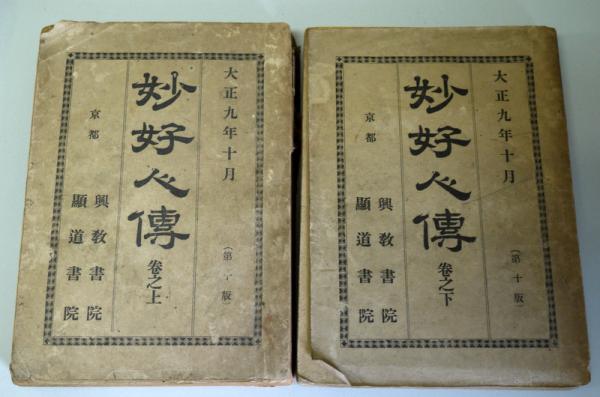 大正九年十月
（第十版）
妙好人傳
卷之上
京都
興教書院
顯道書院
大正九年十月
（第十版）
妙好人傳
卷之下
京都
興教書院
顯道書院